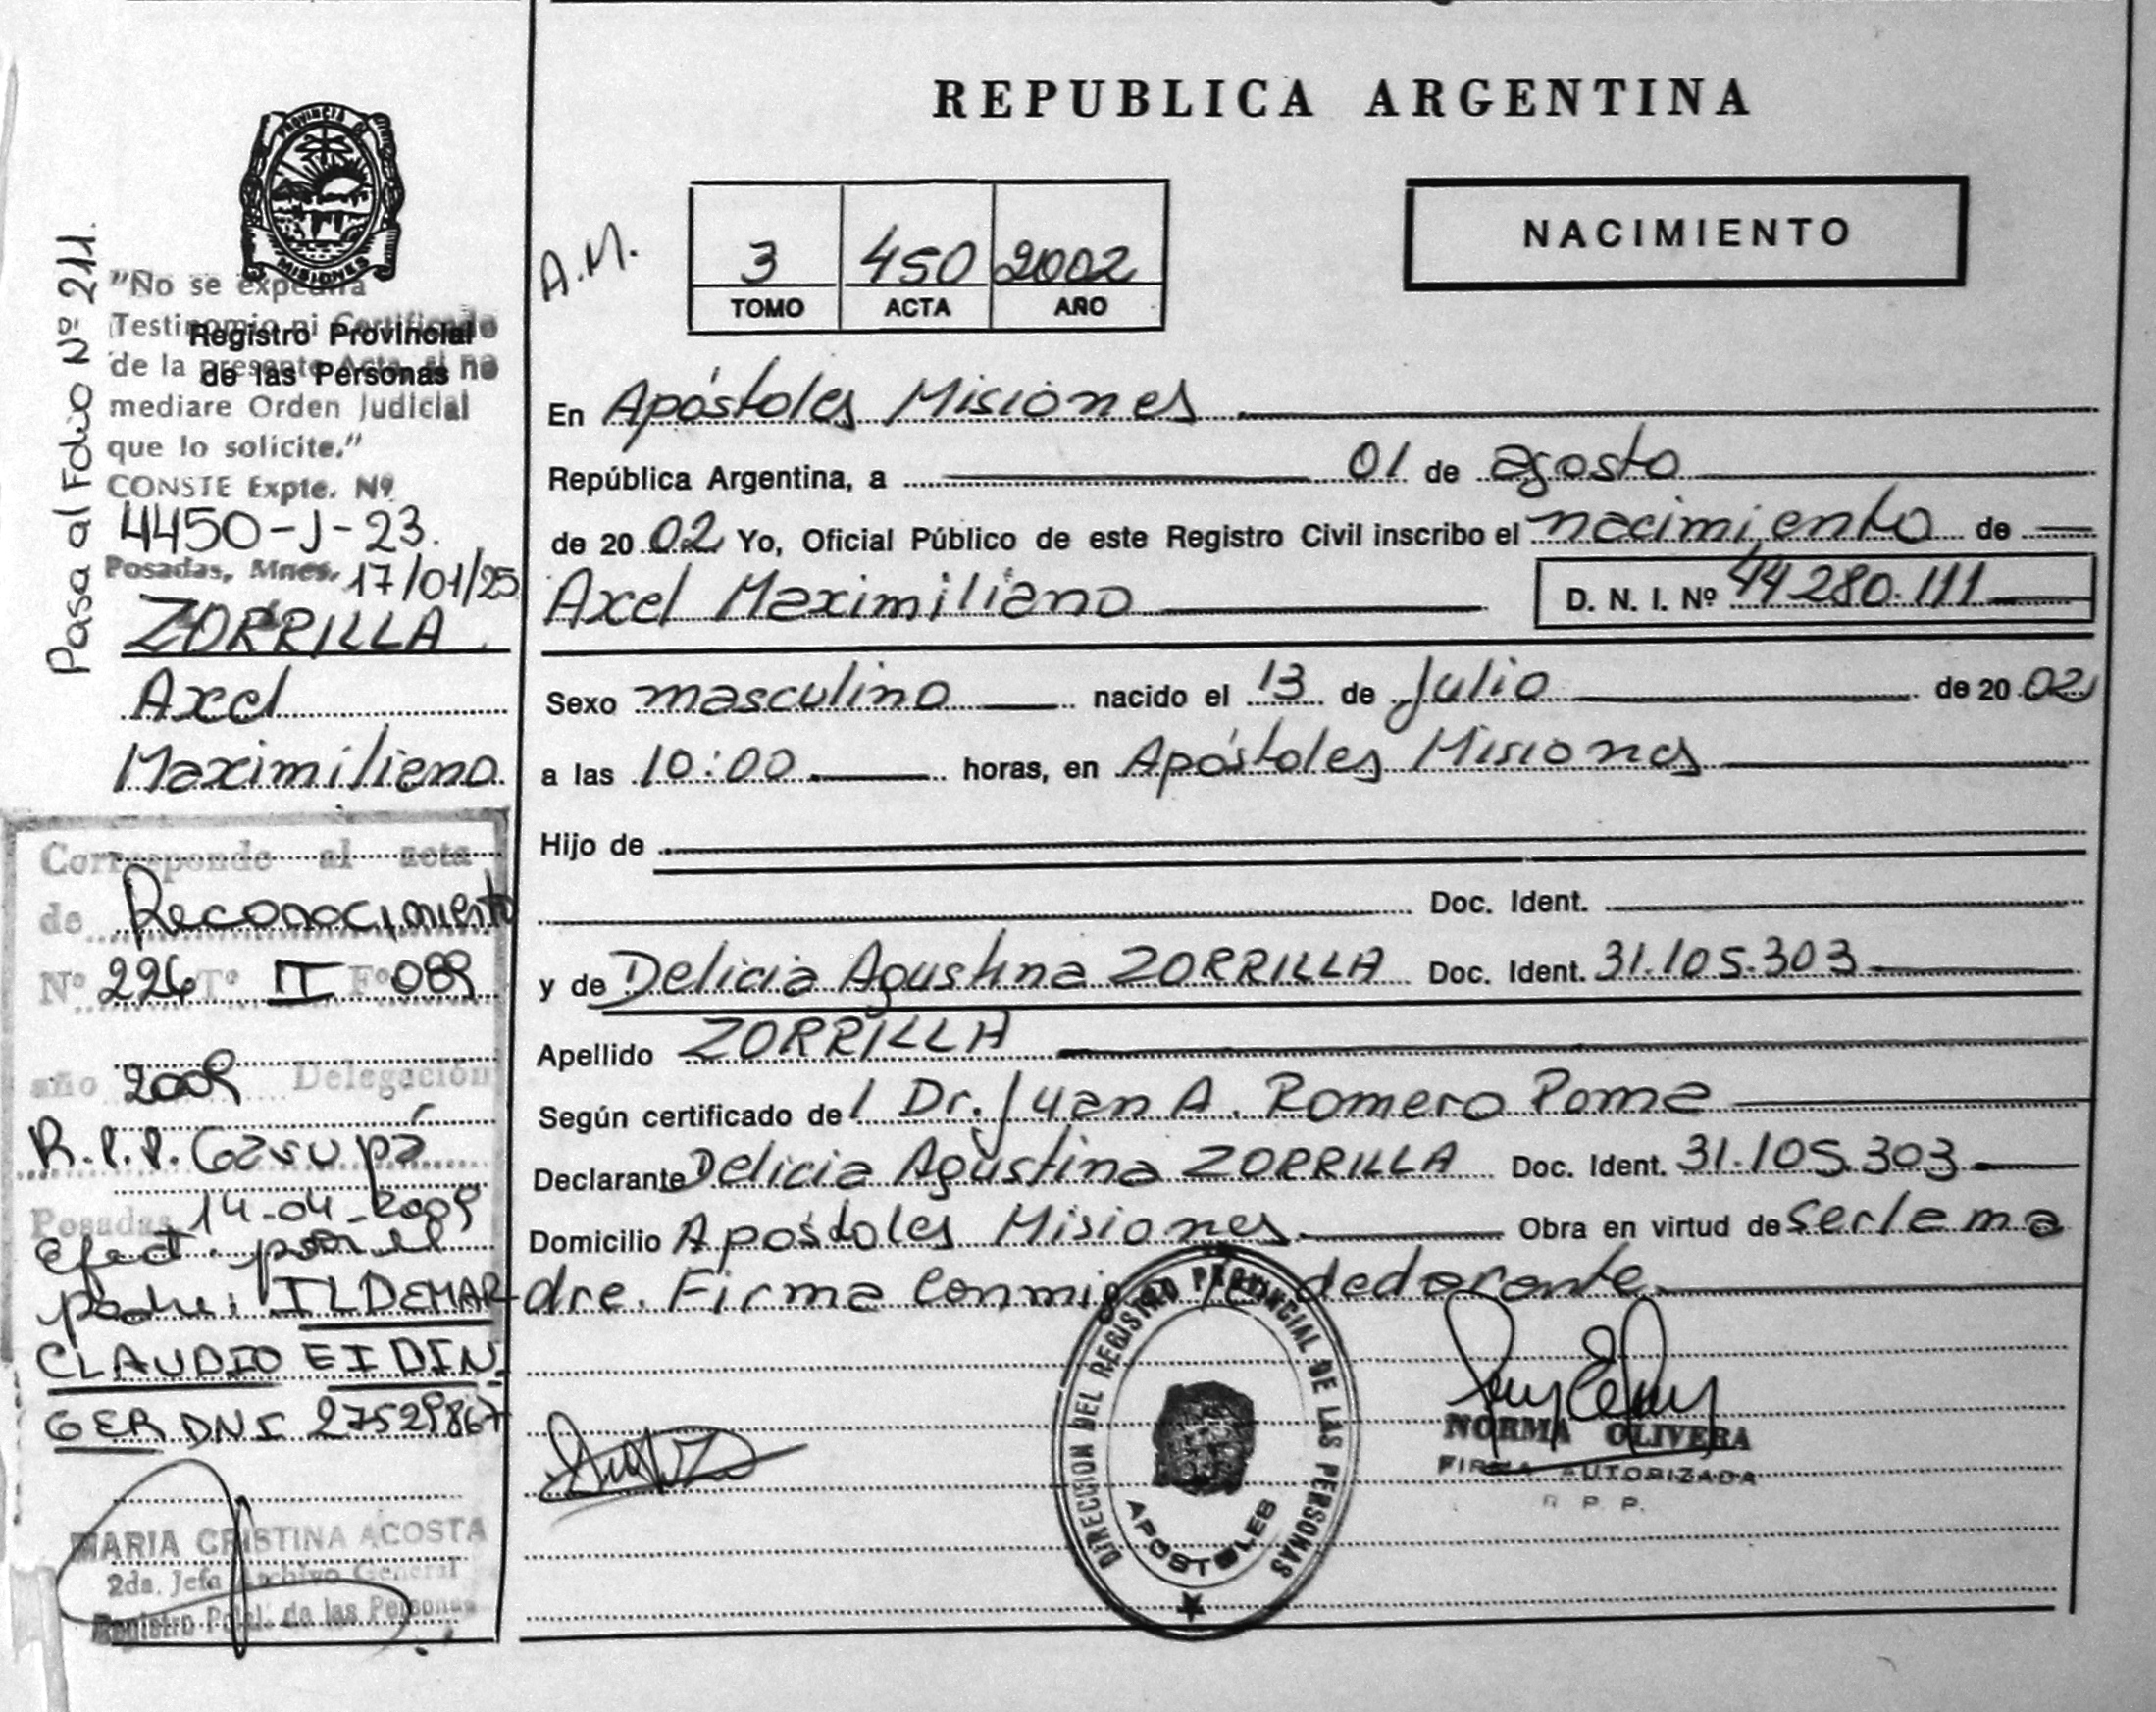 PROVINCIA DE
MISIONES
Registro Provincial
de las Personas
"No se expedirá
Testimonio ni Certificado
de la presente Acta, si no
mediare Orden Judicial
que lo solicite."
CONSTE Expte. Nº
4450-J-23.
Posadas, Mnes. 17/01/25
Pasa al Folio Nº 211.
ZORRILLA
Axel
Maximiliano
Corresponde al acta
de Reconocimiento
Nº 226 Tº II Fº 089
año 2009 Delegación
R.P.P. Garupá
Posadas 14-04-2009
Efect. por el
padre: ILDEMAR
CLAUDIO EIDIN-
GER DNI 27529867
MARIA CRISTINA ACOSTA
2da. Jefa Archivo General
Registro Pcial. de las Personas
REPUBLICA ARGENTINA
A.M.
3 450 2002
TOMO ACTA AÑO
NACIMIENTO
En Apóstoles Misiones
República Argentina, a 01 de agosto
de 2002 Yo, Oficial Público de este Registro Civil inscribo el nacimiento de
Axel Maximiliano D. N. I. Nº 44280.111
Sexo masculino nacido el 13 de Julio de 2002
a las 10:00 horas, en Apóstoles Misiones
Hijo de
Doc. Ident.
y de Delicia Agustina ZORRILLA Doc. Ident. 31.105.303
Apellido ZORRILLA
Según certificado de l Dr. Juan A. Romero Poma
Declarante Delicia Agustina ZORRILLA Doc. Ident. 31.105.303
Domicilio Apóstoles Misiones Obra en virtud de ser la ma
dre. Firma conmigo declarante.
DIRECCION DEL REGISTRO PROVINCIAL DE LAS PERSONAS
APOSTOLES
NORMA OLIVERA
FIRMA AUTORIZADA
R. P. P.